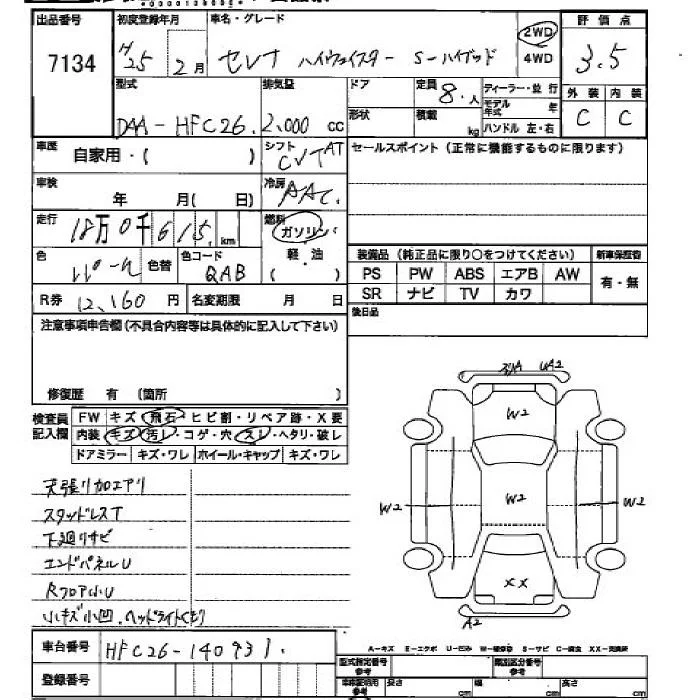 出品番号 初度登録年月 車名・グレード 評価点
7134 H25年 2月 セレナ ハイウェイスター S-ハイブリッド 2WD 4WD 3.5
型式 排気量 ドア 定員 8.人 ディーラー・並行 外装 内装
DAA-HFC26. 2,000cc 形状 積載 kg モデル年式 年 ハンドル 左・右 C C
車歴 自家用・( ) シフト CVT AT セールスポイント(正常に機能するものに限ります)
車検 年 月( 日) 冷房 AAC.
走行 18万0千615, km 燃料 ガソリン
軽・油 ( )
色 パール 色替 色コード QAB 装備品(純正品に限り○をつけてください) 新車保証書
PS PW ABS エアB AW 有・無
R券 12,160円 名変期限 月 日 SR ナビ TV カワ
注意事項申告欄(不具合内容等は具体的に記入して下さい) 後日品
修復歴 有 (箇所 )
検査員記入欄 FW キズ・飛石・ヒビ割・リペア跡・X要
内装 キズ・汚レ・コゲ・穴・スレ・ヘタリ・破レ
ドアミラー キズ・ワレ ホイール・キャップ キズ・ワレ
UA2
W2
W2 W2 W2
XX
A2
天張り加エアリ
スタッドレスT
下廻りサビ
エンドパネルU
RフロアホU
小キズ小凹.ヘッドライトくもり
A-キズ E-エクボ U-凹み W-補修跡 S-サビ C-腐食 XX-交換済
車台番号 HFC26-140931.
登録番号
型式指定番号 参考 類別区分番号 参考
車検証記載 参考 長さ cm 幅 cm 高さ cm